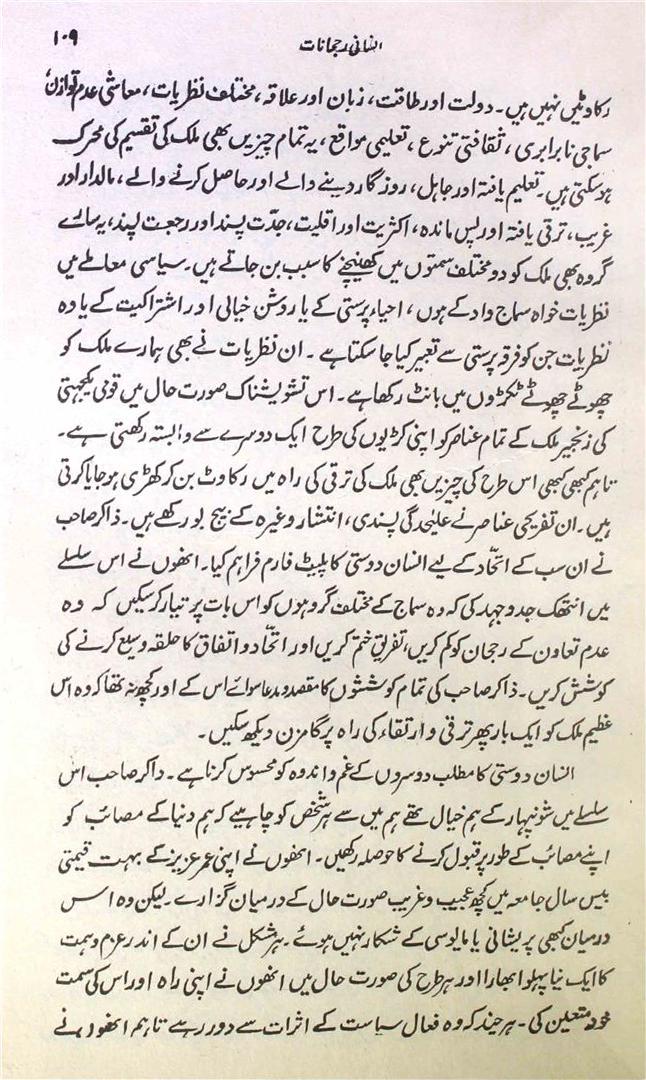 ۱۰۹
انسانی رجحانات
رکاوٹیں نہیں ہیں۔ دولت اور طاقت، زبان اور علاقہ، مختلف نظریات، معاشی عدم توازن،
سماجی نابرابری، ثقافتی تنوع، تعلیمی مواقع، یہ تمام چیزیں بھی ملک کی تقسیم کی محرک
ہو سکتی ہیں۔ تعلیم یافتہ اور جاہل، روزگار دینے والے اور حاصل کرنے والے، مالدار اور
غریب، ترقی یافتہ اور پس ماندہ، اکثریت اور اقلیت، جدّت پسند اور رجعت پسند، یہ سارے
گروہ بھی ملک کو دو مختلف سمتوں میں کھینچنے کا سبب بن جاتے ہیں۔ سیاسی معاملے میں
نظریات خواہ سماج واد کے ہوں، احیاء پرستی کے یا روشن خیالی اور اشتراکیت کے یا وہ
نظریات جن کو فرقہ پرستی سے تعبیر کیا جا سکتا ہے۔ ان نظریات نے بھی ہمارے ملک کو
چھوٹے چھوٹے ٹکڑوں میں بانٹ رکھا ہے۔ اس تشویشناک صورت حال میں قومی یکجہتی
کی زنجیر ملک کے تمام عناصر کو اپنی کڑیوں کی طرح ایک دوسرے سے وابستہ رکھتی ہے۔
تاہم کبھی کبھی اس طرح کی چیزیں بھی ملک کی ترقی کی راہ میں رکاوٹ بن کر کھڑی ہو جایا کرتی
ہیں۔ ان تفریحی عناصر نے علیٰحدگی پسندی، انتشار وغیرہ کے بیج بو رکھے ہیں۔ ذاکر صاحب
نے ان سب کے اتحّاد کے لیے انسان دوستی کا پلیٹ فارم فراہم کیا۔ انھوں نے اس سلسلے
میں انتھک جدوجہد کی کہ وہ سماج کے مختلف گروہوں کو اس بات پر تیار کر سکیں کہ وہ
عدم تعاون کے رجحان کو کم کریں، تفریق ختم کریں اور اتحّاد و اتفاق کا حلقہ وسیع کرنے کی
کوشش کریں۔ ذاکر صاحب کی تمام کوششوں کا مقصد و مدعا سوائے اس کے اور کچھ نہ تھا کہ وہ اس
عظیم ملک کو ایک بار پھر ترقی و ارتقاء کی راہ پر گامزن دیکھ سکیں۔
انسان دوستی کا مطلب دوسروں کے غم و اندوہ کو محسوس کرنا ہے۔ ذاکر صاحب اس
سلسلے میں شوپنہار کے ہم خیال تھے ہم میں سے ہر شخص کو چاہیے کہ ہم دنیا کے مصائب کو
اپنے مصائب کے طور پر قبول کرنے کا حوصلہ رکھیں۔ انھوں نے اپنی عمر عزیز کے بہت قیمتی
بیس سال جامعہ میں کچھ عجیب و غریب صورت حال کے درمیان گزارے۔ لیکن وہ اس
درمیان کبھی پریشانی یا مایوسی کے شکار نہیں ہوئے۔ ہر مشکل نے ان کے اندر عزم و ہمت
کا ایک نیا پہلو ابھارا اور ہر طرح کی صورت حال میں انھوں نے اپنی راہ اور اس کی سمت
خود متعین کی۔ ہر چند کہ وہ فعال سیاست کے اثرات سے دور رہے تاہم انھوں نے